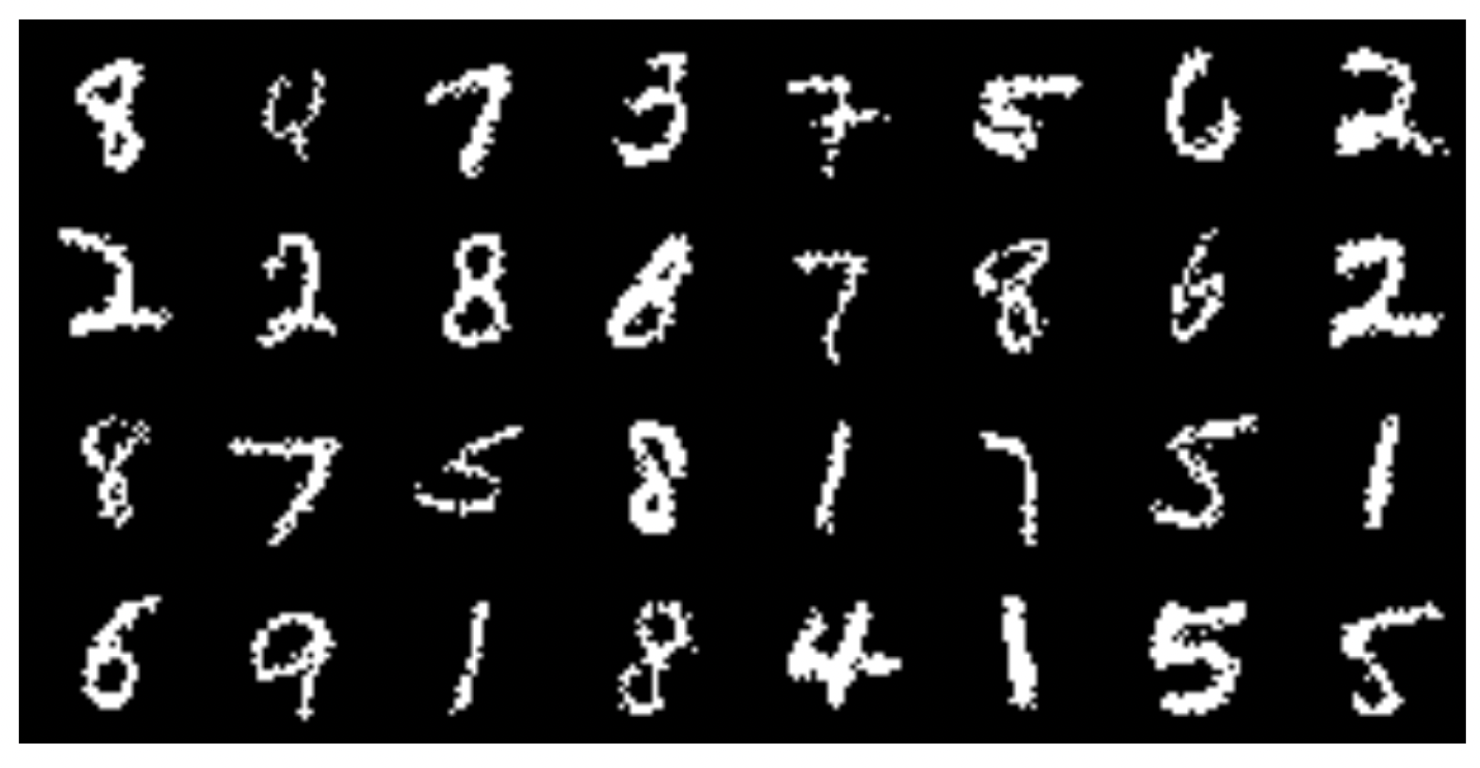 8 4 7 3 7 5 6 2
2 2 8 8 7 8 6 2
8 7 5 8 1 7 5 1
6 9 1 8 4 1 5 5